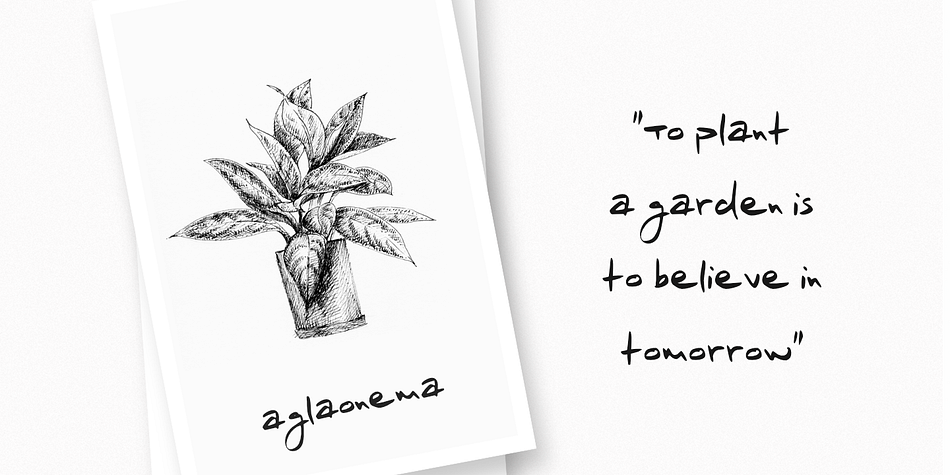 aglaonema
"To plant
a garden is
to believe in
tomorrow"